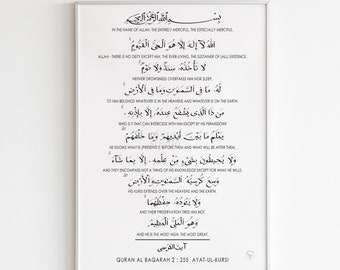 بِسْمِ اللَّهِ الرَّحْمَٰنِ الرَّحِيمِ
IN THE NAME OF ALLAH, THE ENTIRELY MERCIFUL, THE ESPECIALLY MERCIFUL.
اللَّهُ لَا إِلَٰهَ إِلَّا هُوَ الْحَيُّ الْقَيُّومُ
ALLAH - THERE IS NO DEITY EXCEPT HIM, THE EVER-LIVING, THE SUSTAINER OF (ALL) EXISTENCE.
لَا تَأْخُذُهُ سِنَةٌ وَلَا نَوْمٌ
NEITHER DROWSINESS OVERTAKES HIM NOR SLEEP.
لَهُ مَا فِي السَّمَاوَاتِ وَمَا فِي الْأَرْضِ
TO HIM BELONGS WHATEVER IS IN THE HEAVENS AND WHATEVER IS ON THE EARTH.
مَن ذَا الَّذِي يَشْفَعُ عِندَهُ إِلَّا بِإِذْنِهِ
WHO IS IT THAT CAN INTERCEDE WITH HIM EXCEPT BY HIS PERMISSION?
يَعْلَمُ مَا بَيْنَ أَيْدِيهِمْ وَمَا خَلْفَهُمْ
HE KNOWS WHAT IS (PRESENTLY) BEFORE THEM AND WHAT WILL BE AFTER THEM,
وَلَا يُحِيطُونَ بِشَيْءٍ مِّنْ عِلْمِهِ إِلَّا بِمَا شَاءَ
AND THEY ENCOMPASS NOT A THING OF HIS KNOWLEDGE EXCEPT FOR WHAT HE WILLS.
وَسِعَ كُرْسِيُّهُ السَّمَاوَاتِ وَالْأَرْضَ
HIS KURSI EXTENDS OVER THE HEAVENS AND THE EARTH,
وَلَا يَئُودُهُ حِفْظُهُمَا
AND THEIR PRESERVATION TIRES HIM NOT.
وَهُوَ الْعَلِيُّ الْعَظِيمُ
AND HE IS THE MOST HIGH, THE MOST GREAT.
آية الكرسي
QURAN AL BAQARAH 2 : 255 AYAT-UL-KURSI